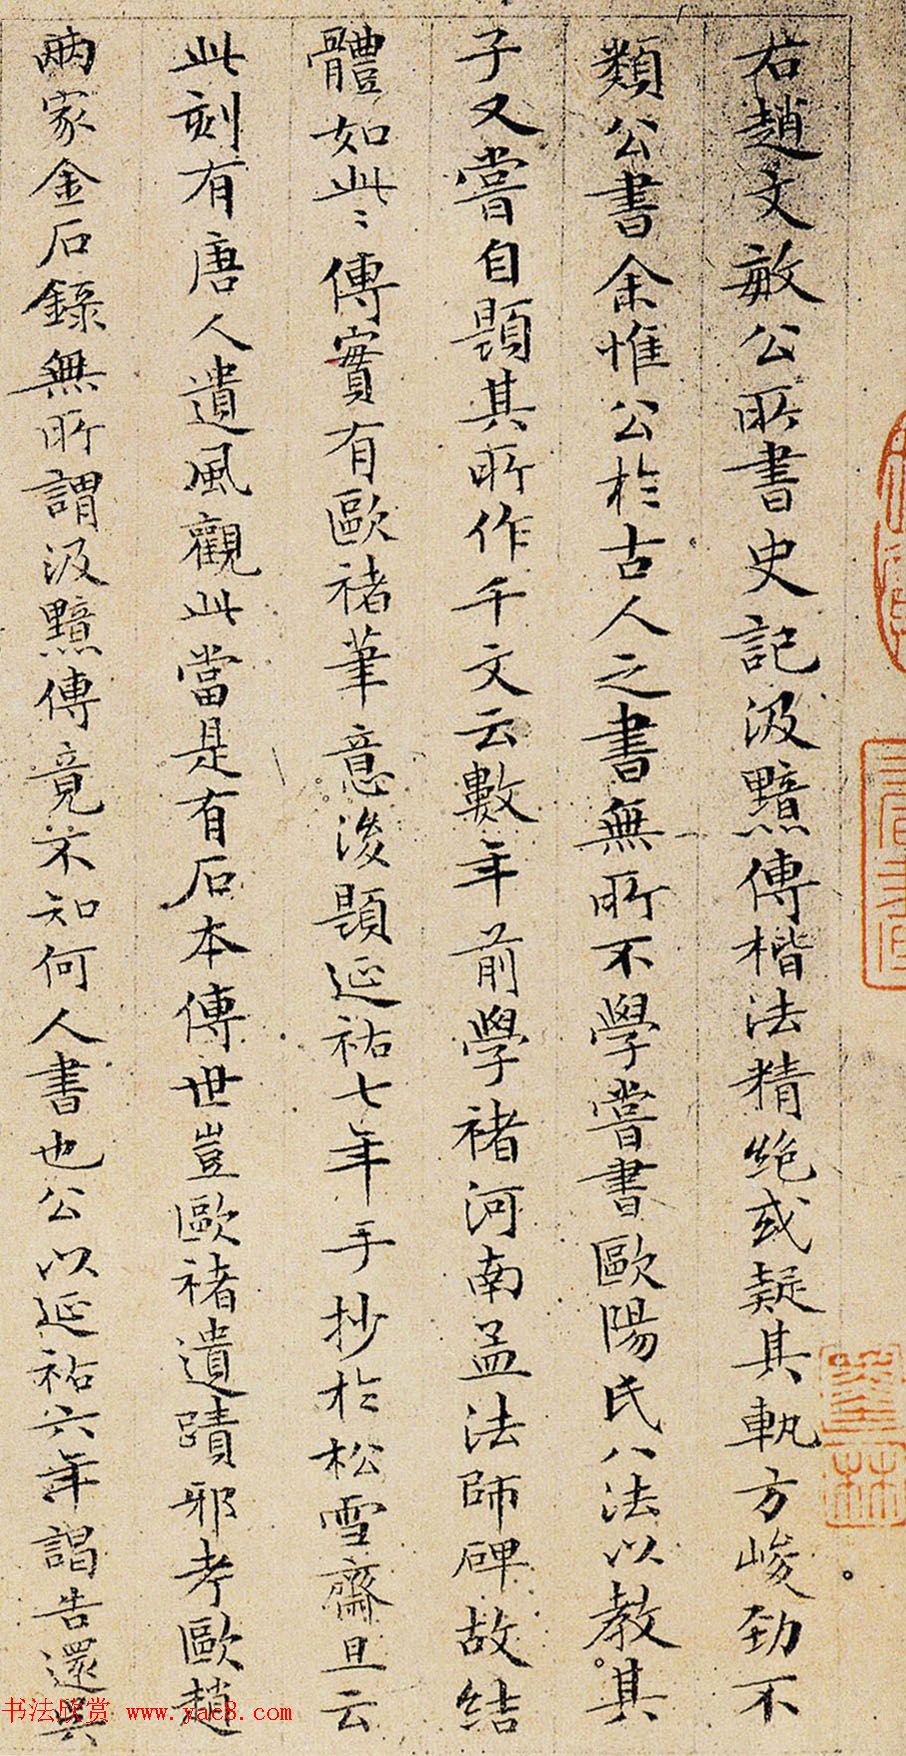 右趙文敏公所書史記汲黯傳楷法精絶或疑其軌方峻勁不
類公書余惟公於古人之書無所不學嘗書歐陽氏八法以教其
子又嘗自題其所作千文云數年前學褚河南孟法師碑故結
體如此〻傳實有歐褚筆意後題延祐七年手抄於松雪齋且云
此刻有唐人遺風觀此當是有石本傳世豈歐褚遺蹟邪考歐趙
兩家金石錄無所謂汲黯傳竟不知何人書也公以延祐六年謁告還吳
书法欣赏 www.yac8.com